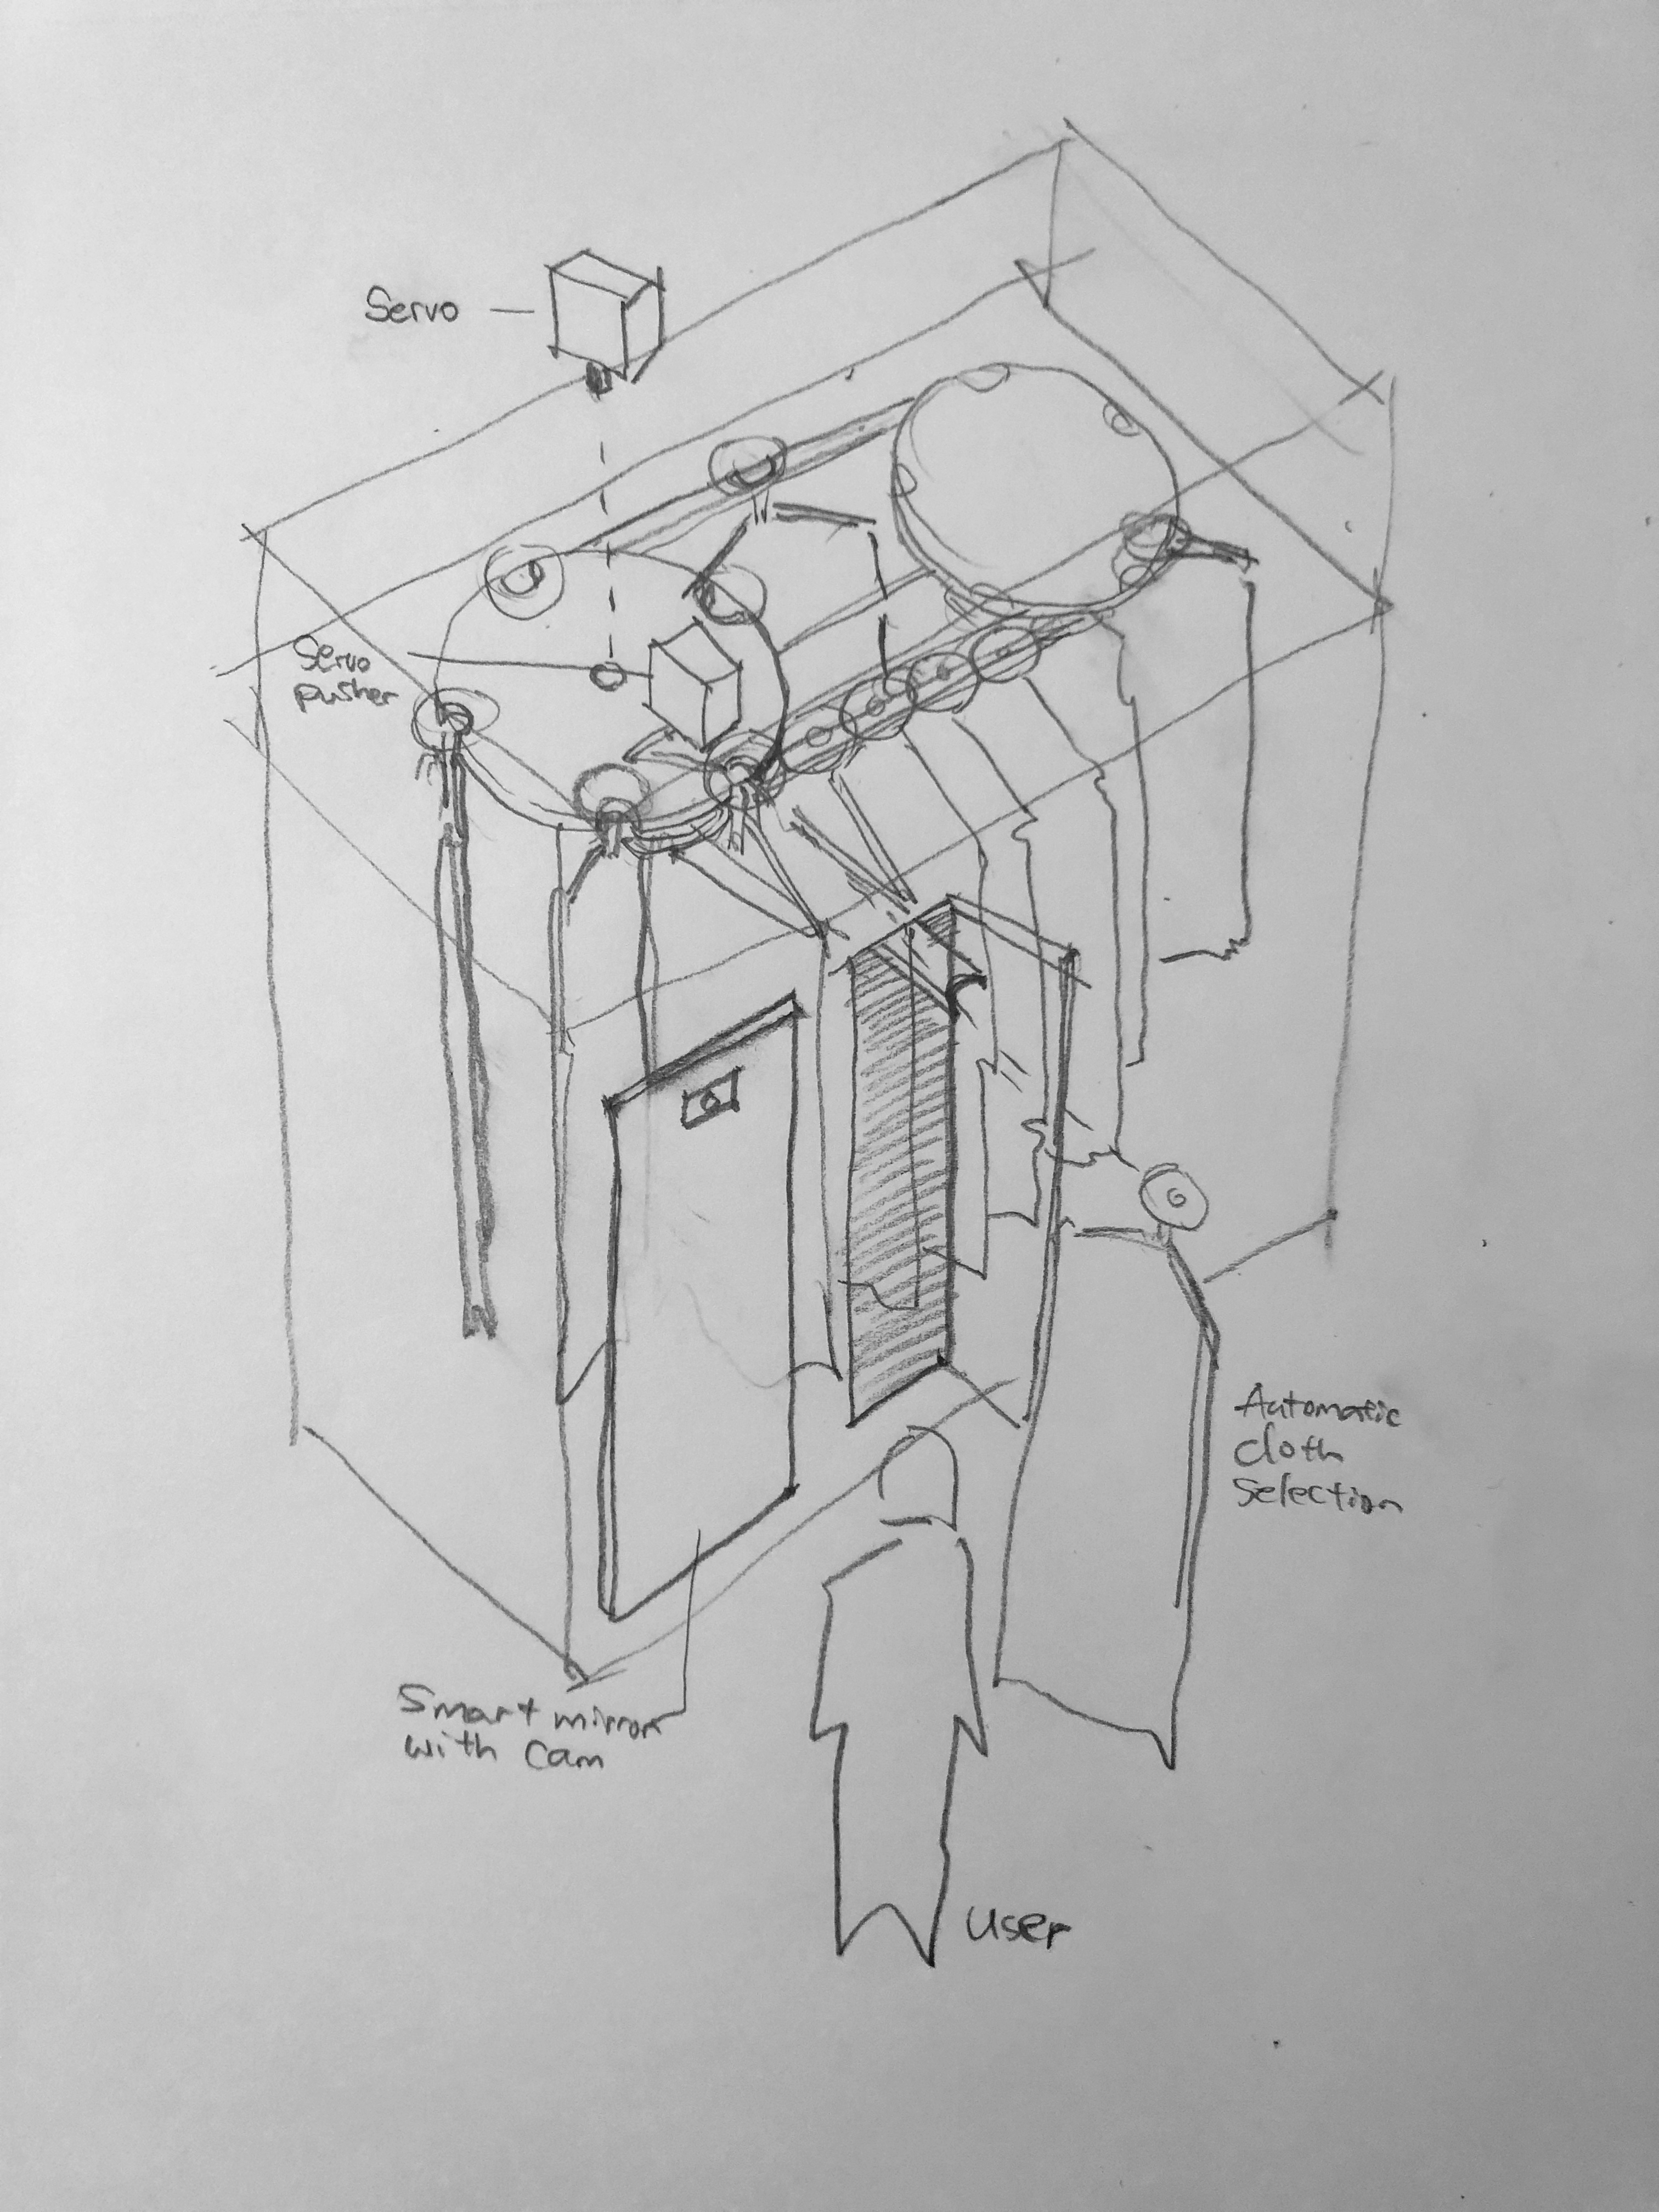 Servo
Servo
pusher
Automatic
cloth
selection
Smart mirror
with cam
User